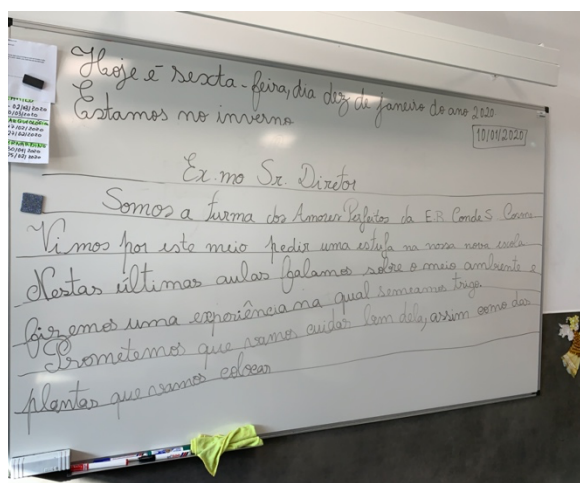 Hoje é sexta-feira, dia dez de janeiro do ano 2020.
Estamos no inverno
10/01/2020
Ex.mo Sr. Diretor
Somos a turma dos Amores Perfeitos da E.B. Conde S. Cosme
Vimos por este meio pedir uma estufa na nossa nova escola
Nestas últimas aulas falamos sobre o meio ambiente e
fizemos uma experiência na qual semeamos trigo.
Prometemos que vamos cuidar bem dela, assim como das
plantas que vamos colocar